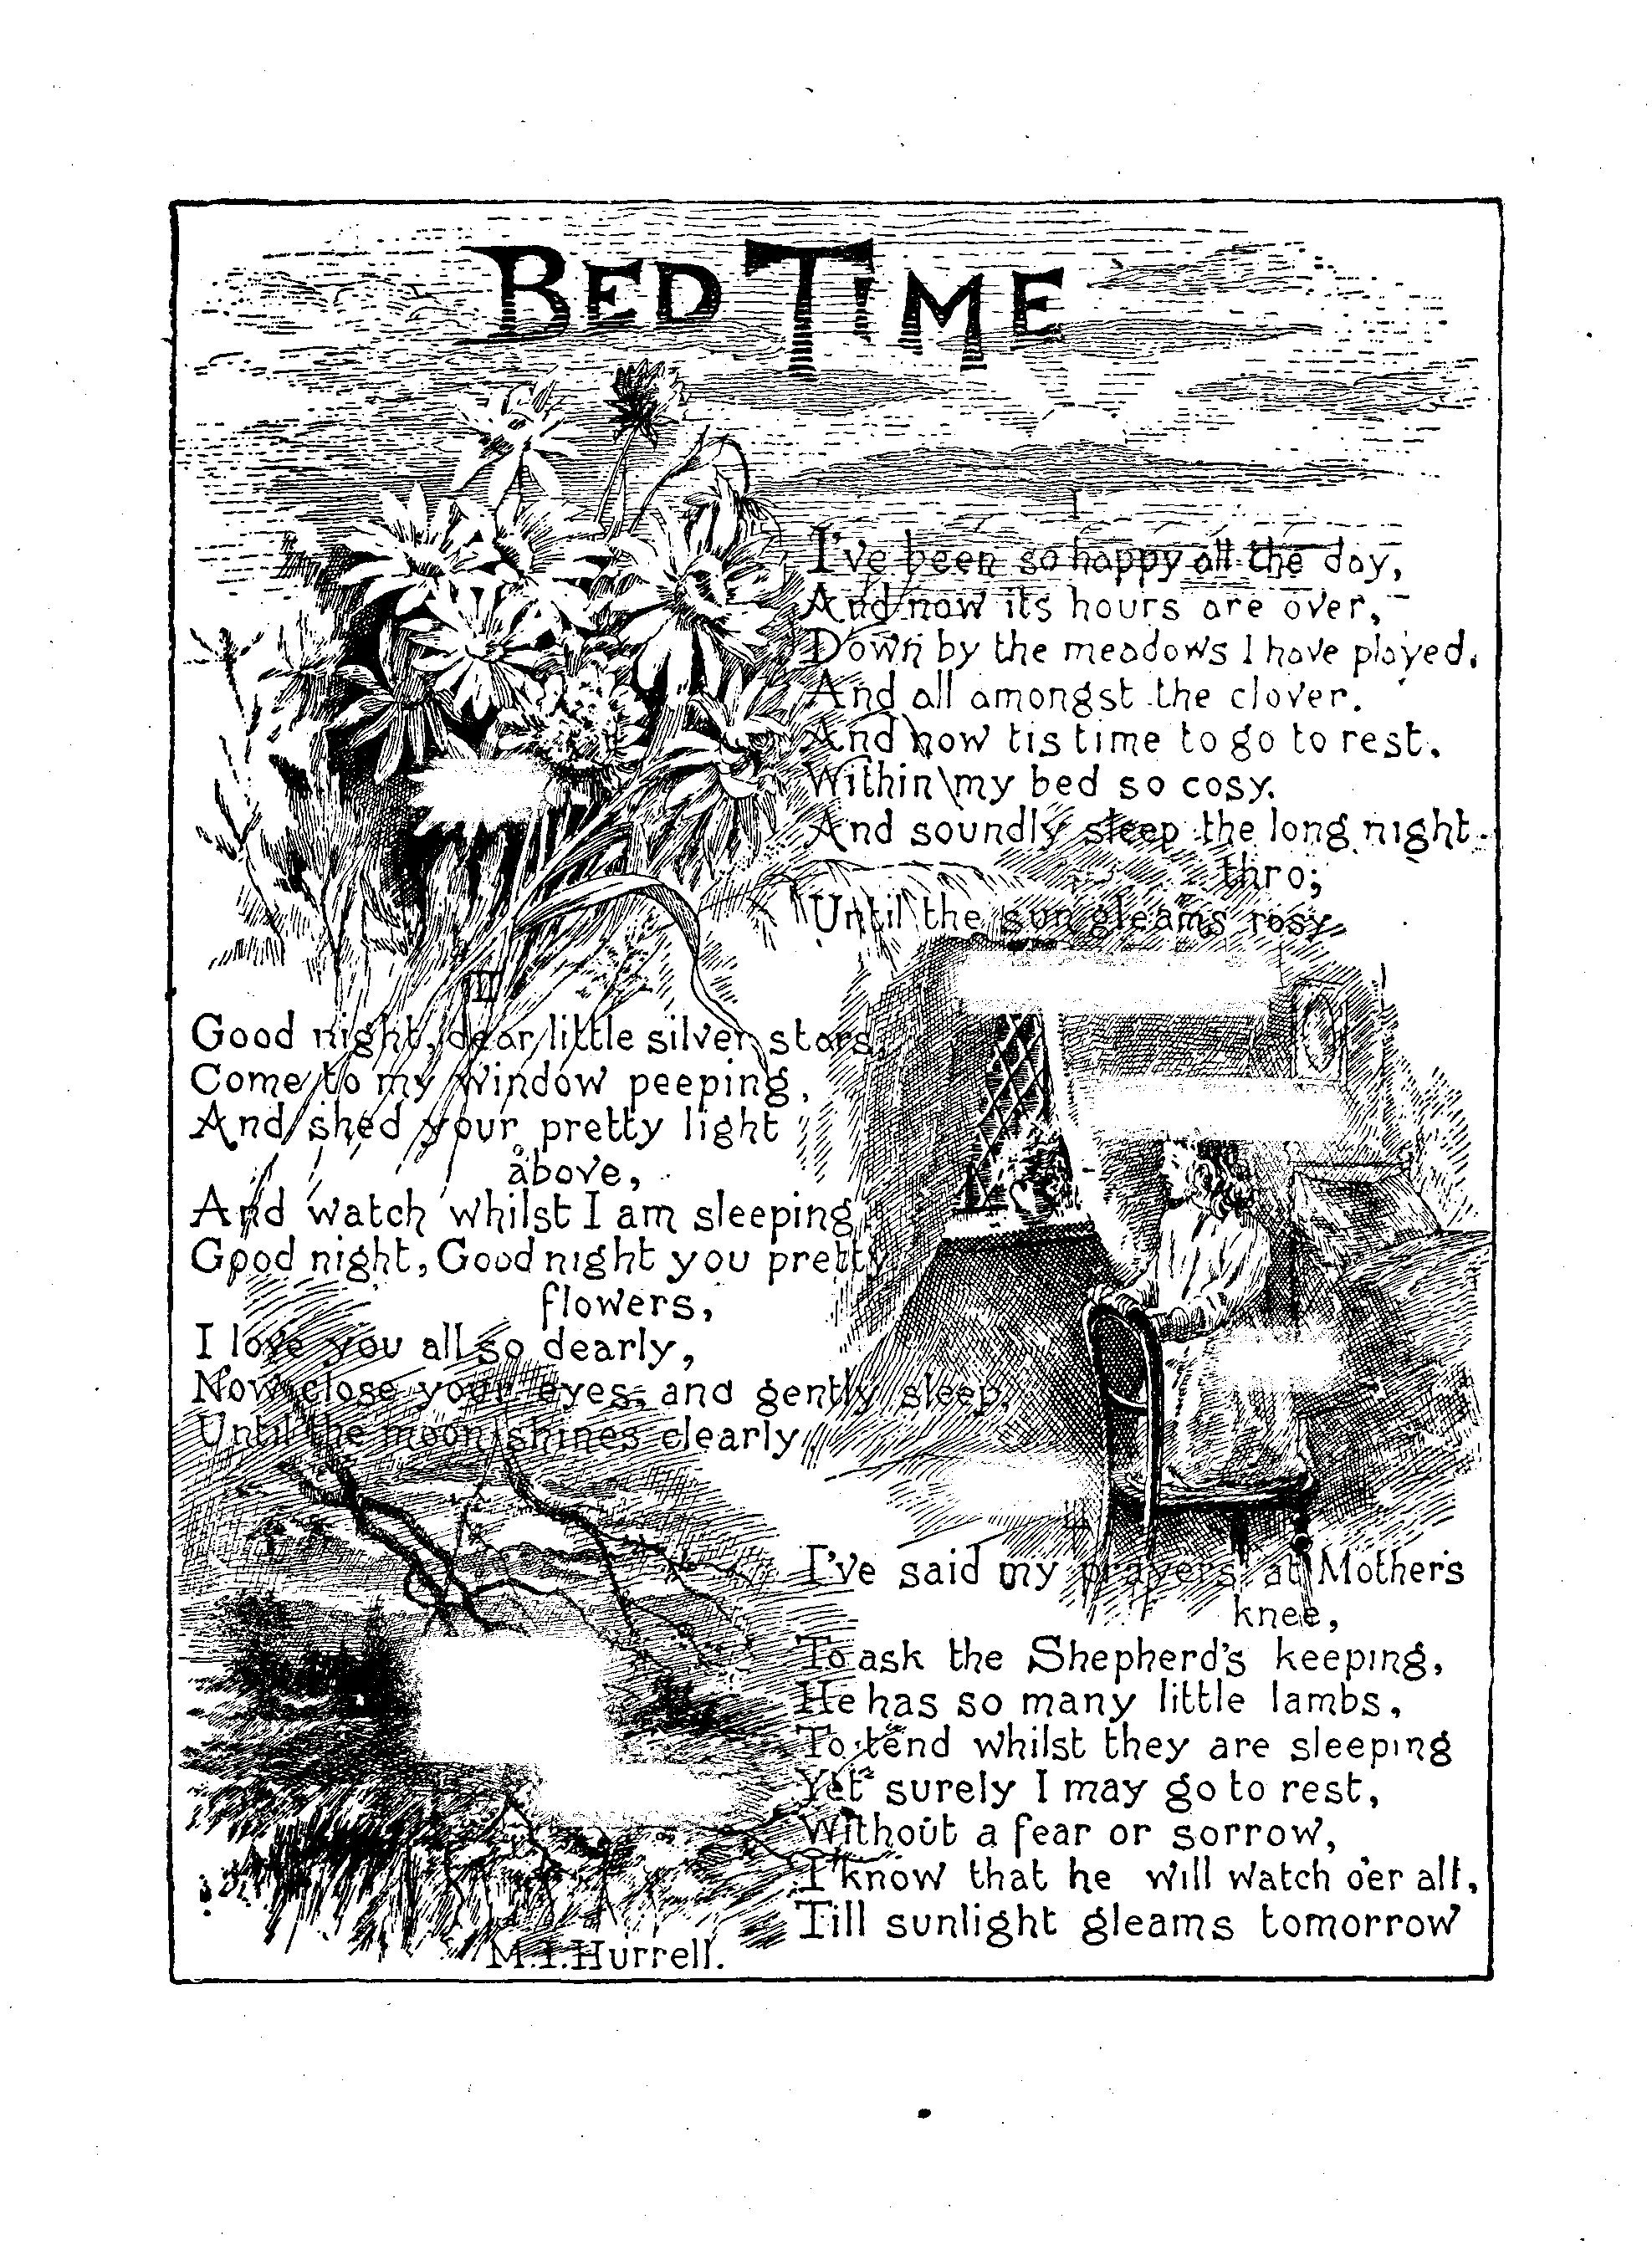 BED TIME
I
I've been so happy all the day,
And now its hours are over,
Down by the meadows I have played.
And all amongst the clover.
And now tis time to go to rest.
Within my bed so cosy.
And soundly sleep the long night
thro;
Until the sun gleams rosy
II
Good night, dear little silver stars,
Come to my window peeping,
And shed your pretty light
above,
And watch whilst I am sleeping
Good night, Good night you pretty
flowers,
I love you all so dearly,
Now close your eyes, and gently sleep,
Until the moon shines clearly
III
I've said my prayers at Mother's
knee,
To ask the Shepherd's keeping,
He has so many little lambs,
To tend whilst they are sleeping
Yet surely I may go to rest,
Without a fear or sorrow,
I know that he will watch o'er all,
Till sunlight gleams tomorrow
M.I.Hurrell.